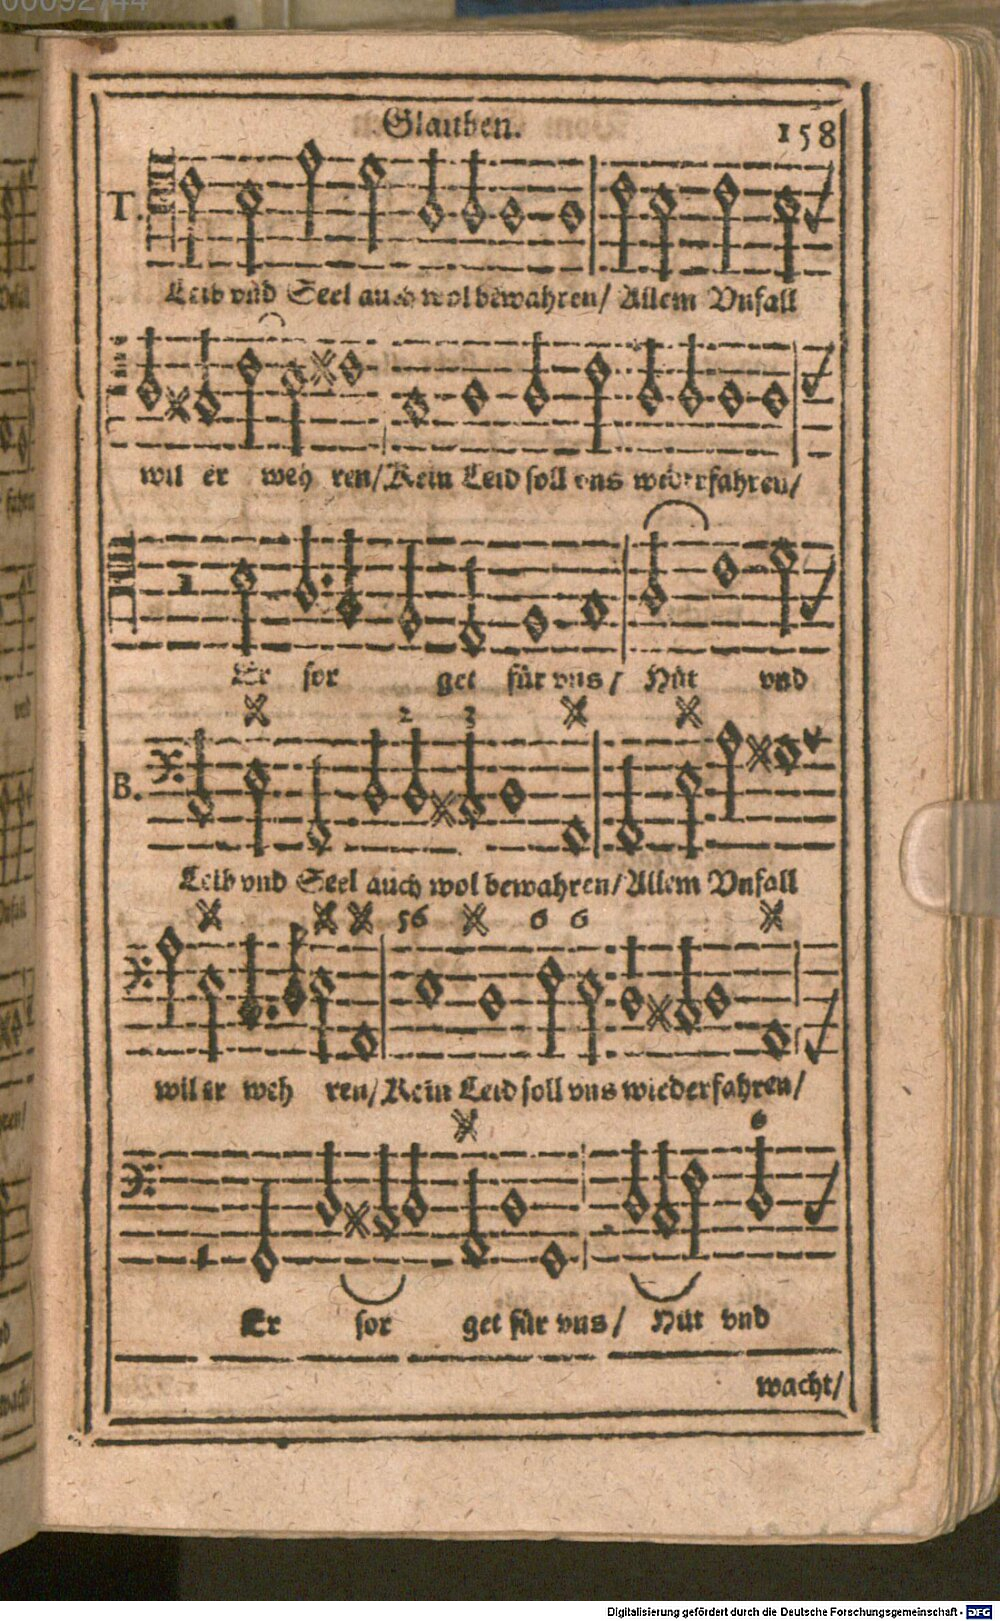 00092744
Glauben.
158
T.
Leib vnd Seel auch wol bewahren/ Allem Vnfall
wil er weh ren/ Kein Leid soll vns wiederfahren/
Er sor get für vns/ Hüt vnd
2 3
B.
Leib vnd Seel auch wol bewahren/ Allem Vnfall
56 6 6
wil er weh ren/ Kein Leid soll vns wiederfahren/
6
Er sor get für vns/ Hüt vnd
wacht/
Digitalisierung gefördert durch die Deutsche Forschungsgemeinschaft - DFG